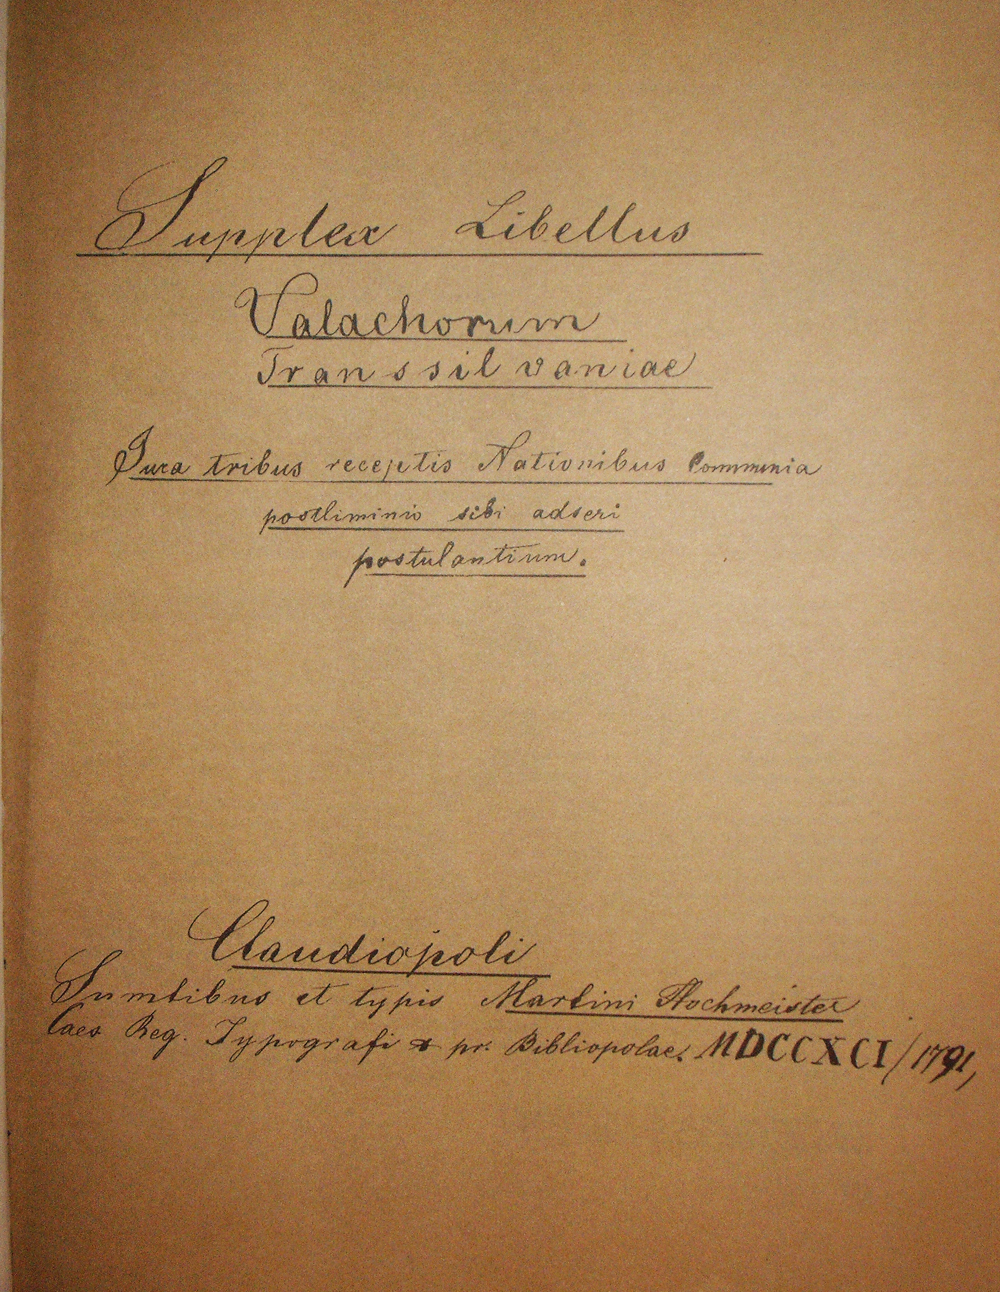 Supplex Libellus
Valachorum
Transsilvaniae
Jura tribus receptis Nationibus Communia
postliminio sibi adseri
postulantium.
Claudiopoli
Sumtibus et typis Martini Hochmeister
Caes Reg. Typografi & pr. Bibliopolae. MDCCXCI/1791,